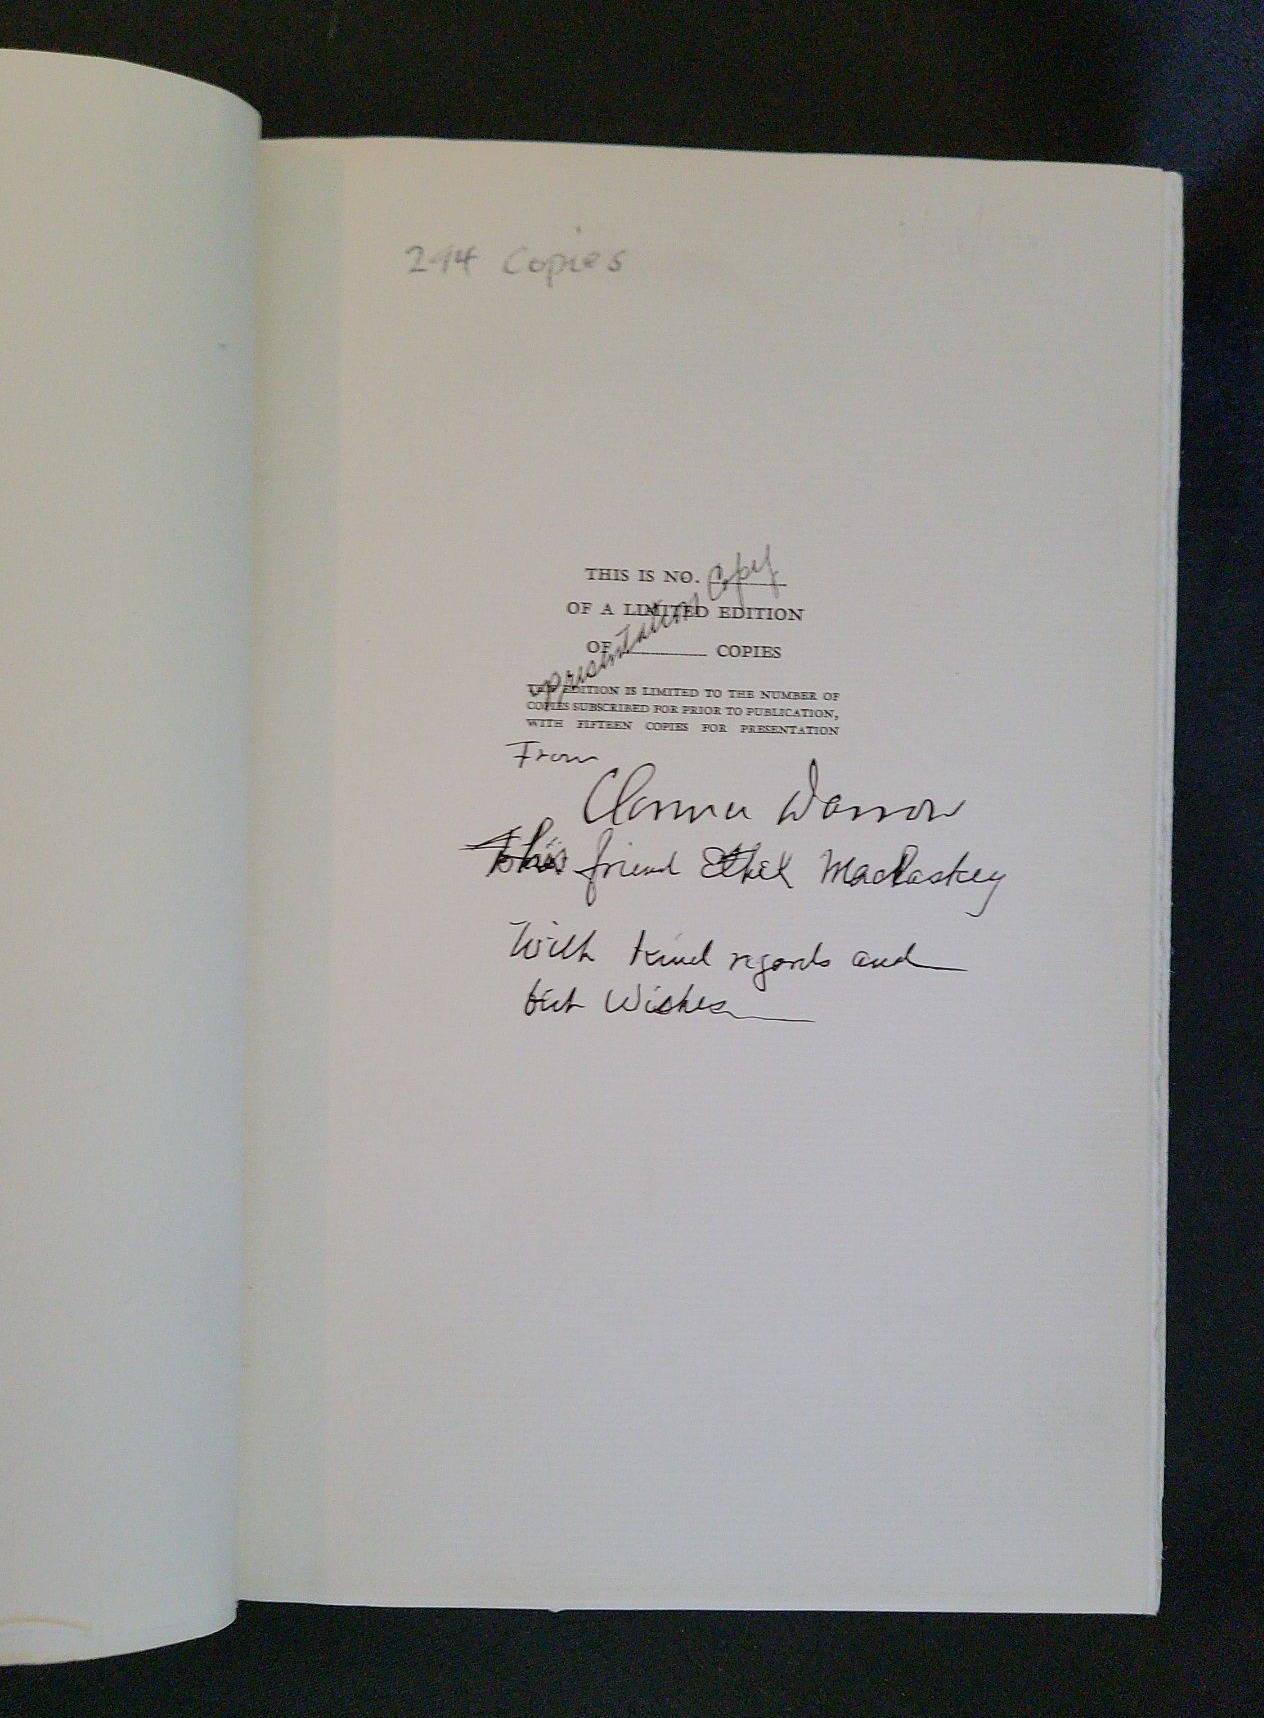 294 Copies
THIS IS NO.
OF A LIMITED EDITION
OF COPIES
presentation Copy
THIS EDITION IS LIMITED TO THE NUMBER OF
COPIES SUBSCRIBED FOR PRIOR TO PUBLICATION,
WITH FIFTEEN COPIES FOR PRESENTATION
From
Clarence Darrow
To his friend Ethel Maclaskey
With kind regards and
best Wishes